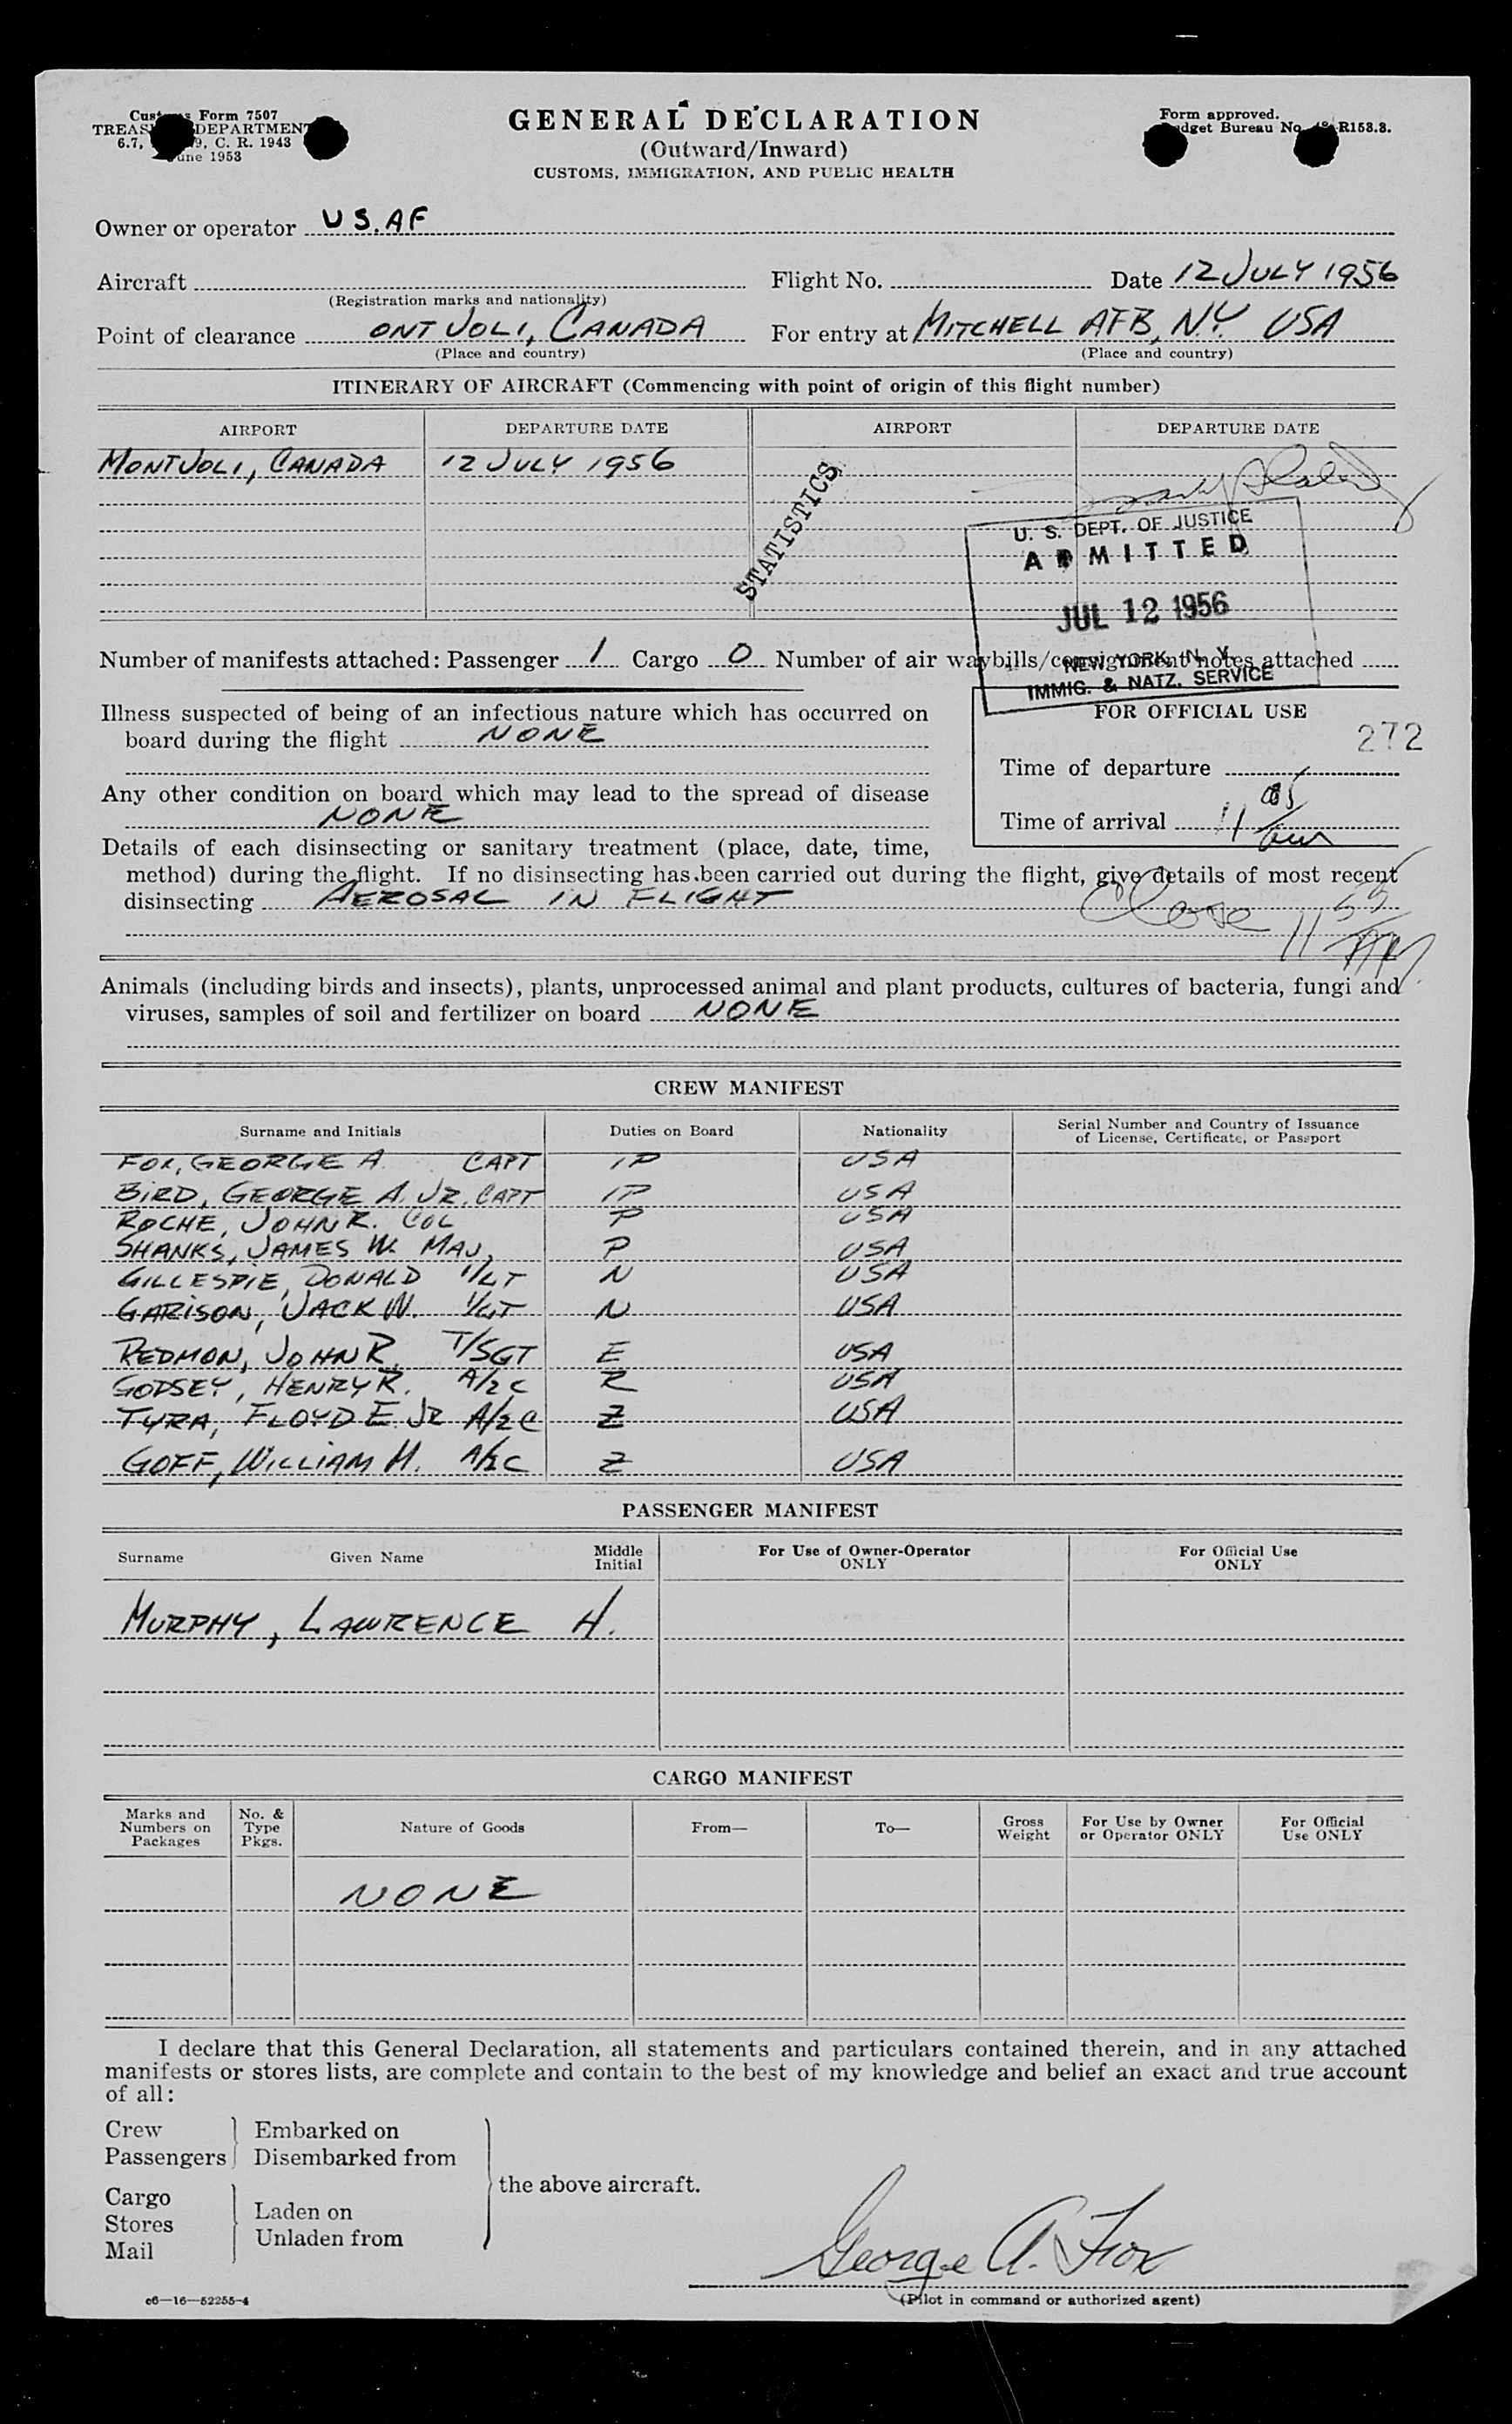 Customs Form 7507
TREASURY DEPARTMENT
6.7, 9, C. R. 1943
June 1953
GENERAL DECLARATION
(Outward/Inward)
CUSTOMS, IMMIGRATION, AND PUBLIC HEALTH
Form approved.
Budget Bureau No. R158.3.
Owner or operator US.AF
Aircraft
(Registration marks and nationality)
Flight No.
Date 12 JULY 1956
Point of clearance ONT JOLI, CANADA
(Place and country)
For entry at MITCHELL AFB, N.Y. USA
(Place and country)
ITINERARY OF AIRCRAFT (Commencing with point of origin of this flight number)
AIRPORT DEPARTURE DATE AIRPORT DEPARTURE DATE
MONTJOLI, CANADA 12 JULY 1956
STATISTICS
U. S. DEPT. OF JUSTICE
ADMITTED
JUL 12 1956
NEW YORK, N. Y.
IMMIG. & NATZ. SERVICE
Number of manifests attached: Passenger 1 Cargo 0 Number of air waybills/consignment notes attached
Illness suspected of being of an infectious nature which has occurred on
board during the flight NONE
FOR OFFICIAL USE
272
Time of departure
Time of arrival 11 05
Any other condition on board which may lead to the spread of disease
NONE
Details of each disinsecting or sanitary treatment (place, date, time,
method) during the flight. If no disinsecting has been carried out during the flight, give details of most recent
disinsecting AEROSAL IN FLIGHT
Close 11 55 AM
Animals (including birds and insects), plants, unprocessed animal and plant products, cultures of bacteria, fungi and
viruses, samples of soil and fertilizer on board NONE
CREW MANIFEST
Surname and Initials Duties on Board Nationality Serial Number and Country of Issuance
of License, Certificate, or Passport
FOX, GEORGE A. CAPT IP USA
BIRD, GEORGE A. JR. CAPT IP USA
ROCHE, JOHN R. COL P USA
SHANKS, JAMES W. MAJ, P USA
GILLESPIE, DONALD 1/LT N USA
GARISON, JACK W. 1/LT N USA
REDMON, JOHN R. T/SGT E USA
GODSEY, HENRY R. A/2C R USA
TYRA, FLOYD E. JR A/2C Z USA
GOFF, WILLIAM H. A/2C Z USA
PASSENGER MANIFEST
Surname Given Name Middle
Initial
For Use of Owner-Operator
ONLY
For Official Use
ONLY
MURPHY, LAWRENCE H.
CARGO MANIFEST
Marks and
Numbers on
Packages
No. &
Type
Pkgs.
Nature of Goods
From—
To—
Gross
Weight
For Use by Owner
or Operator ONLY
For Official
Use ONLY
NONE
I declare that this General Declaration, all statements and particulars contained therein, and in any attached
manifests or stores lists, are complete and contain to the best of my knowledge and belief an exact and true account
of all:
Crew
Passengers
Embarked on
Disembarked from
the above aircraft.
Cargo
Stores
Mail
Laden on
Unladen from
George A. Fox
(Pilot in command or authorized agent)
c6—16—52255-4